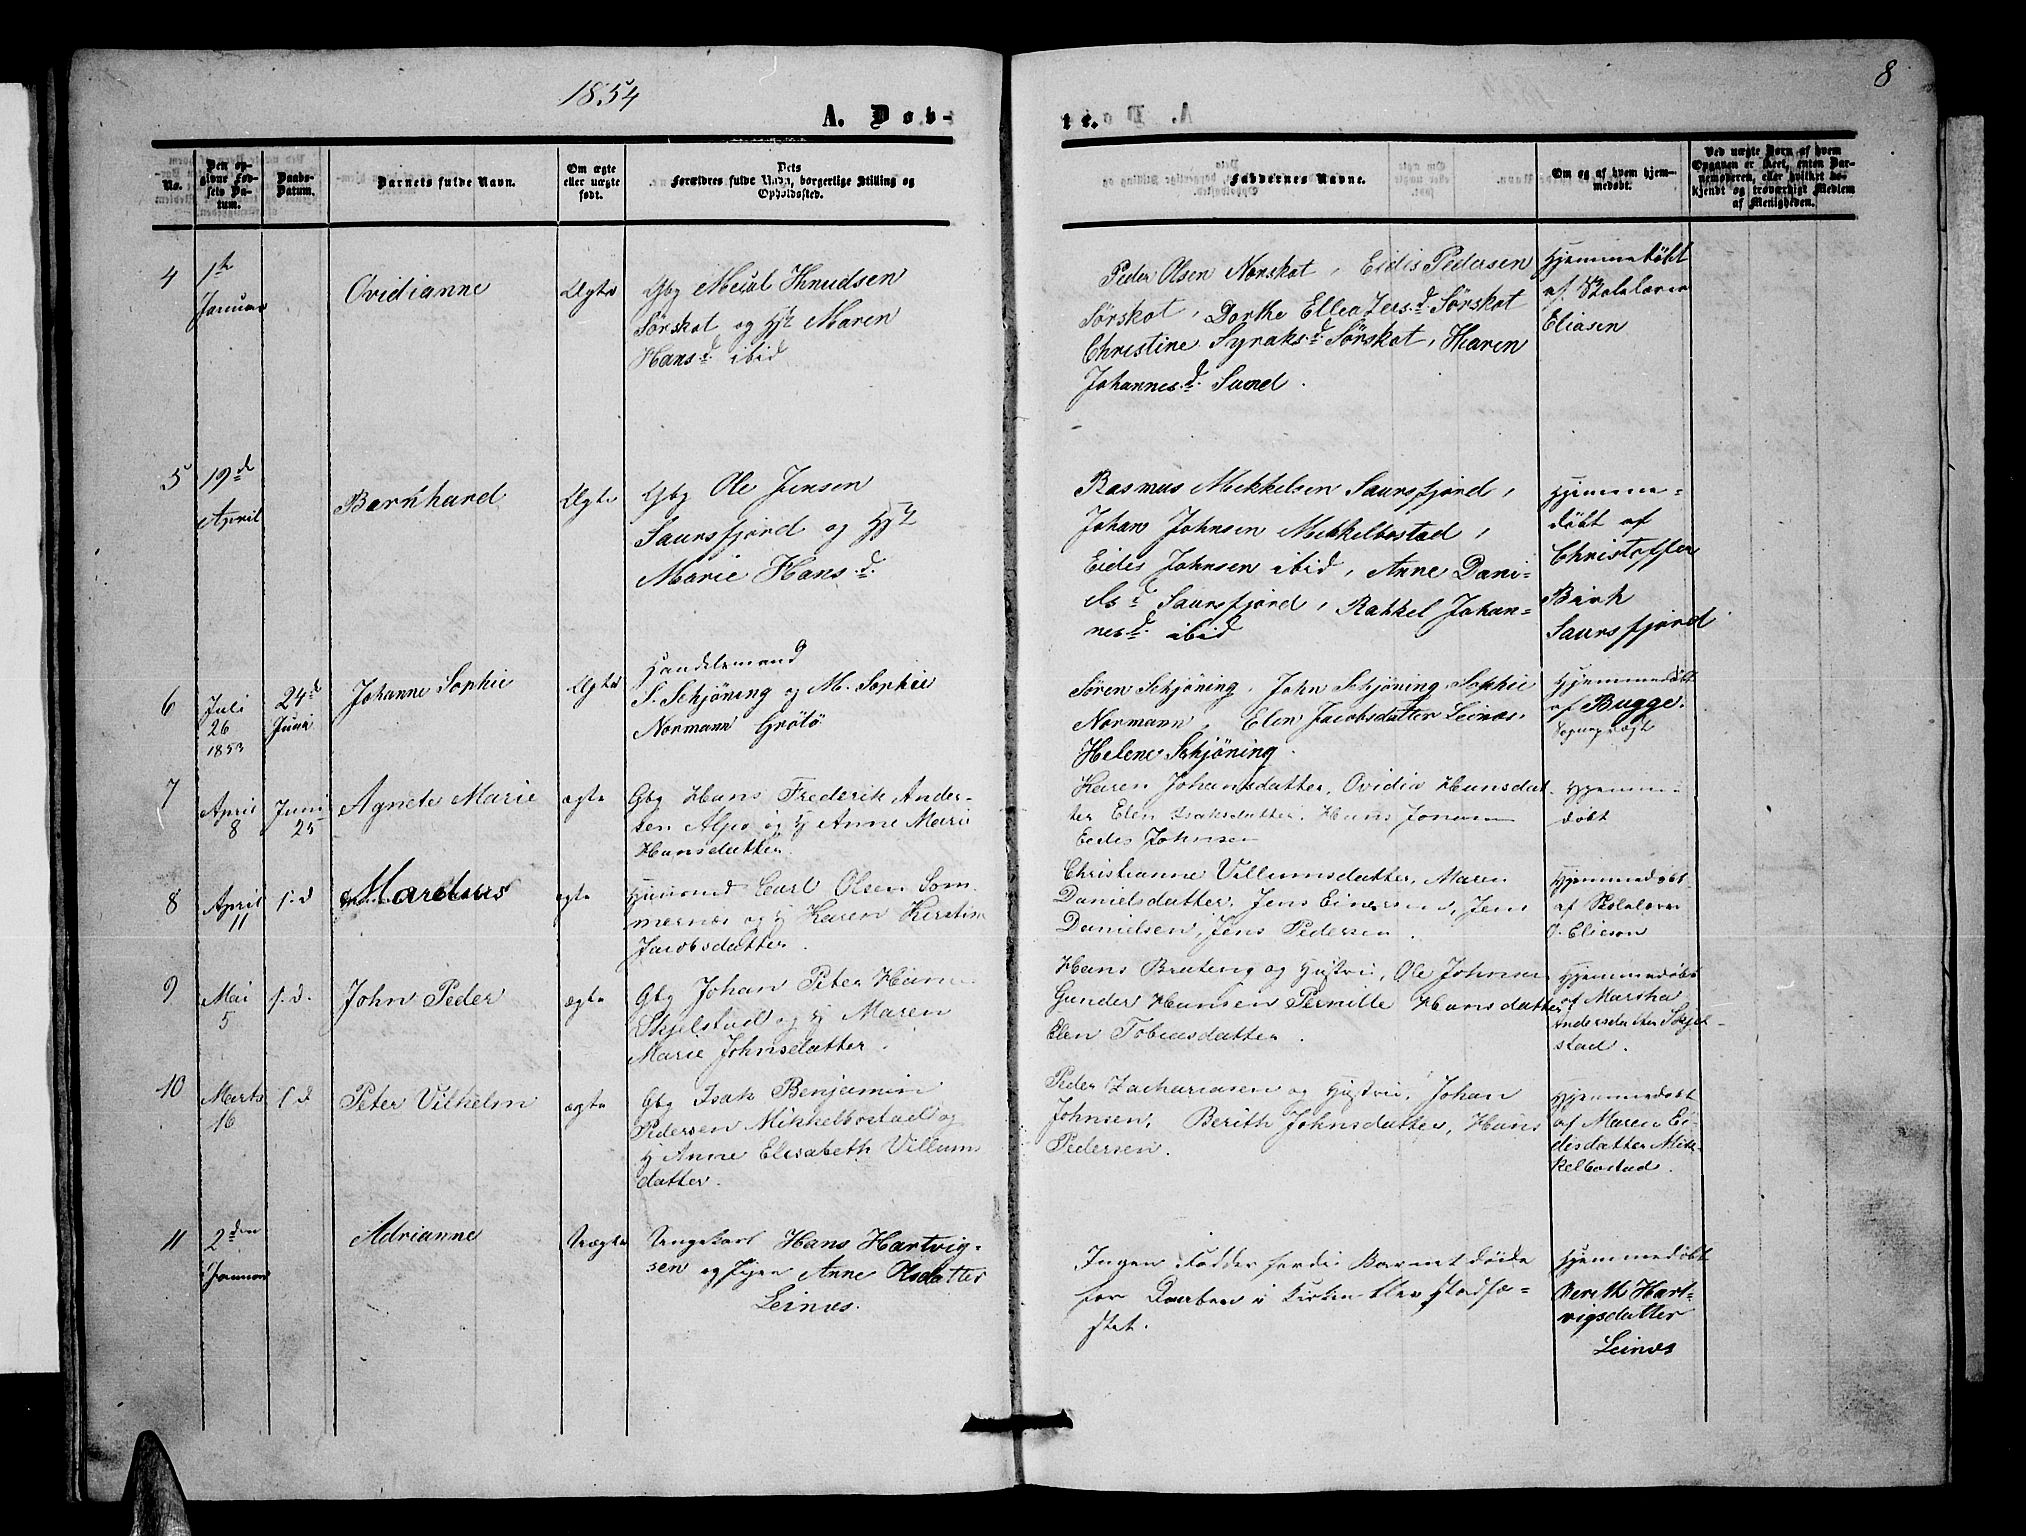 1854
8
A. Dov-
te.
No.
Den op-
givne Fød-
sels Da-
tum.
Daabs-
Datum.
Barnets fulde Navn.
Om ægte
eller uægte
født.
Dets
Forældres fulde Navn, borgerlige Stilling og
Opholdssted.
Faddernes Navne.
Om og af hvem hjem-
medøbt.
Ved uægte Børn af hvem
Opgaven er skeet, enten Bar-
nemoderen, eller hvilket be-
kjendt og troværdigt Medlem
af Menigheden.
4
1ste
Januar
Ovidianne
Ægte
Gbg Knudsen
Sørskot og Hst Maren
Hans.d ibid
Peder Olsen Norskot, Eidis Pedersen
Sørskot, Dorthe Ellea Jens.d Sørskot
Christine Syraks.d Sørskot, Karen
Johannes.d Sund.
Hjemmedøbt
af Skolelærer
Eliasen
5
19de
April
Bernhard
Ægte
Gbg Ole Jensen
Saursfjord og Hst
Marie Hans.d.
Rasmus Mikkelsen Saursfjord,
Johan Johnsen Mikkelbostad,
Eidis Johnsen ibid, Anne Dani-
els.d Saursfjord, Rakkel Johan-
nes.d. ibid
Hjemme-
døbt af
Christoffer
Birk
Saursfjord
6
Juli
26
1853
24de
Juni
Johanne Sophie
Ægte
Handelsmand
S. Schjöning og M. Sophie
Normann Grötö
Sören Schjöning, John Schjöning, Sophie
Normann, Elen Jacobsdatter Leines.
Helene Schjöning.
Hjemmedøbt
af Bugge.
7
April
8
Juni
25
Agnete Marie
ægte
Gbg Hans Frederik Ander-
sen Alpø og H Anne Marie
Hansdatter.
Karen Johansdatter, Ovidia Hansdat-
ter Elen Isaksdatter. Hans Jonsen
Eedis Johnsen
Hjemme-
døbt
8
April
11
s. d
Mardus
ægte
Huusmd Carl Olsen Som-
mernæs og H Karen Kirstine
Jacobsdatter.
Christianne Villumsdatter, Maren
Danielsdatter, Jens Einersen, Jens
Danielsen, Jens Pedersen.
Hjemmedøbt
af Skolelærer
O. Elieson
9
Mai
5
s. d.
John Peder
ægte
Gbg Johan Peter Han-
Skjelstad og H Maren
Marie Johnsdatter.
Hans Brateng og Hustru, Ole Johnsen
Gunder Hansen Pernille Hansdatter
Elen Tobiasdatter.
Hjemmedøbt
af Martha
Andersdatter Skjel-
stad.
10
Marts
16
s. d
Peter Vilhelm
ægte
Gbg Isak Benjamin
Pedersen Mikkelbostad og
H Anne Elisabeth Villums
datter.
Peder Zachariasen og Hustru, Johan
Johnsen, Berith Johnsdatter, Hans
Pedersen.
Hjemmedøbt
af Maren Ei-
disdatter Mik-
kelbostad.
11
2den
Januar
Adrianne
Uægte
Ungekarl Hans Hartvig-
sen og Pigen Anne Olsdatter
Leines.
Ingen Fadder fordi Barnet døde
før Daaben i Kirken blev stadfæ-
stet.
Hjemmedøbt
Berith Hart-
vigsdatter
Leines